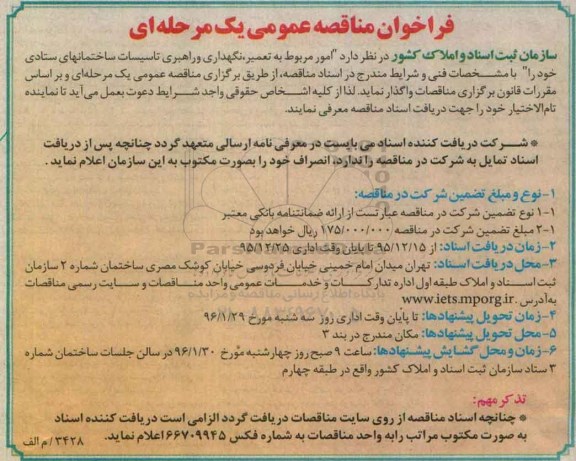 فراخوان مناقصه عمومی یک مرحله‌ای
سازمان ثبت اسناد و املاک کشور در نظر دارد "امور مربوط به تعمیر، نگهداری و راهبری تاسیسات ساختمانهای ستادی
خود را" با مشخصات فنی و شرایط مندرج در اسناد مناقصه، از طریق برگزاری مناقصه عمومی یک مرحله‌ای و بر اساس
مقررات قانون برگزاری مناقصات واگذار نماید. لذا از کلیه اشخاص حقوقی واجد شرایط دعوت بعمل می‌آید تا نماینده
تام‌الاختیار خود را جهت دریافت اسناد مناقصه معرفی نمایند.
* شرکت دریافت کننده اسناد می بایست در معرفی نامه ارسالی متعهد گردد چنانچه پس از دریافت
اسناد تمایل به شرکت در مناقصه را ندارد، انصراف خود را بصورت مکتوب به این سازمان اعلام نماید.
۱- نوع و مبلغ تضمین شرکت در مناقصه:
۱-۱ نوع تضمین شرکت در مناقصه عبارتست از ارائه ضمانتنامه بانکی معتبر
۲-۱ مبلغ تضمین شرکت در مناقصه ۱۷۵/۰۰۰/۰۰۰ ریال خواهد بود
۲- زمان دریافت اسناد: از ۹۵/۱۲/۱۵ تا پایان وقت اداری ۹۵/۱۲/۲۵
۳- محل دریافت اسناد: تهران میدان امام خمینی خیابان فردوسی خیابان کوشک مصری ساختمان شماره ۲ سازمان
ثبت اسناد و املاک طبقه اول اداره تدارکات و خدمات عمومی واحد مناقصات و سایت رسمی مناقصات
به آدرس www.iets.mporg.ir.
۴- زمان تحویل پیشنهادها: تا پایان وقت اداری روز سه شنبه مورخ ۹۶/۱/۲۹
۵- محل تحویل پیشنهادها: مکان مندرج در بند ۳
۶- زمان و محل گشایش پیشنهادها: ساعت ۹ صبح روز چهارشنبه مورخ ۹۶/۱/۳۰ در سالن جلسات ساختمان شماره
۳ ستاد سازمان ثبت اسناد و املاک کشور واقع در طبقه چهارم
تذکر مهم:
* چنانچه اسناد مناقصه از روی سایت مناقصات دریافت گردد الزامی است دریافت کننده اسناد
به صورت مکتوب مراتب را به واحد مناقصات به شماره فکس ۶۶۷۰۹۹۴۵ اعلام نماید.
۳۴۲۸/م الف